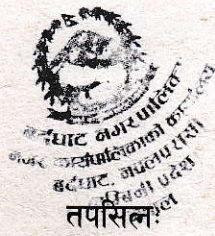 बर्दघाट नगरपालिका
नगर कार्यपालिकाको कार्यालय
बर्दघाट, नवलपरासी
लुम्बिनी प्रदेश
तपसिलः